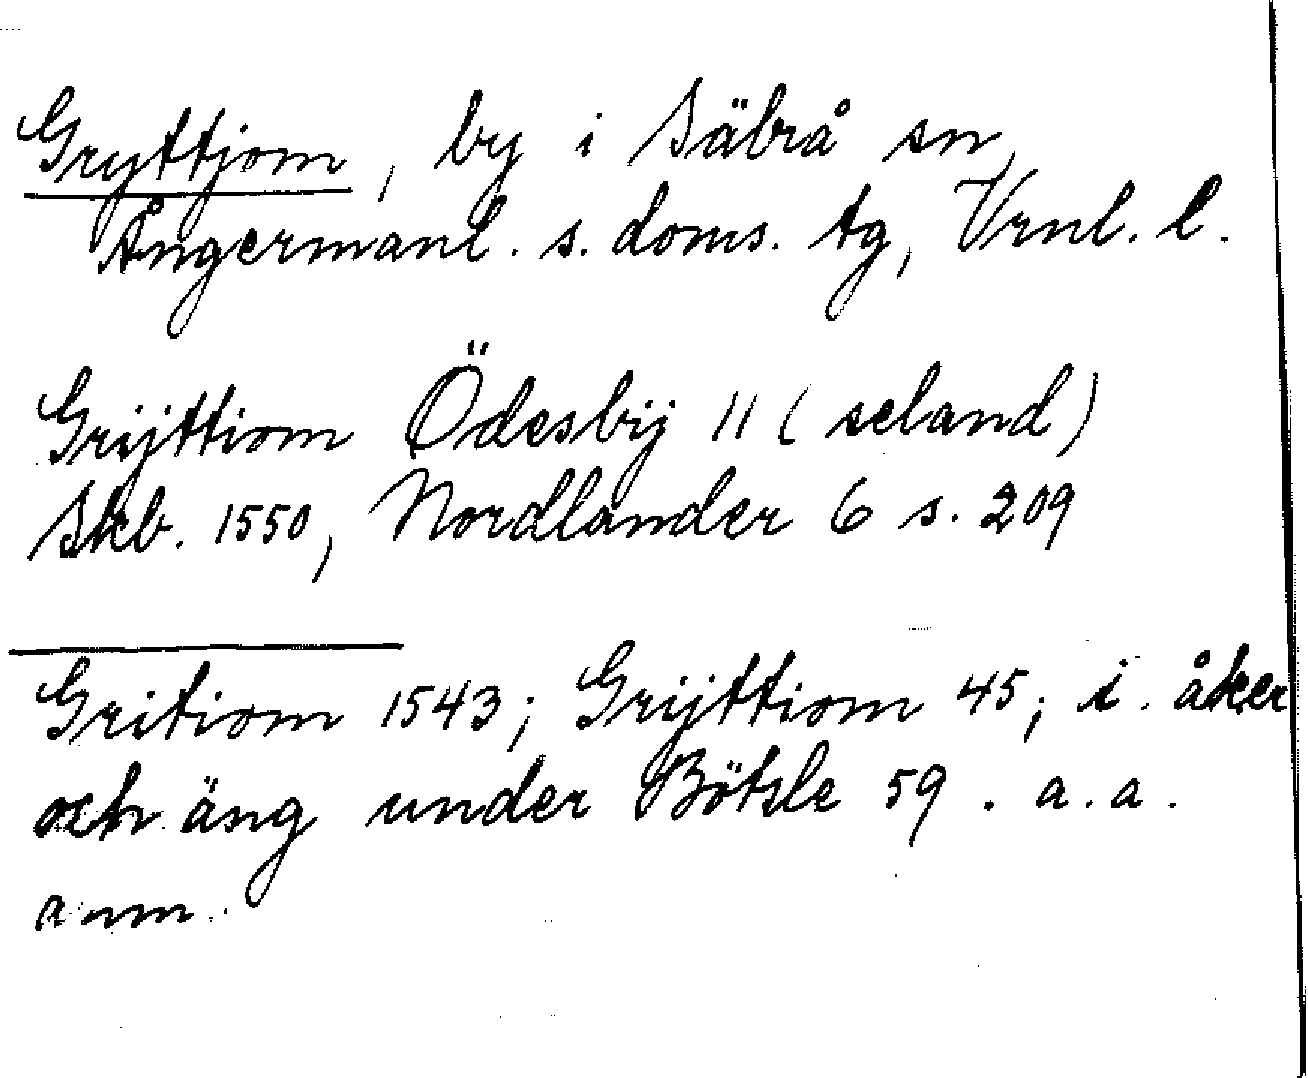 Gryttjom, by i Säbrå sn,
Ångermanl. s. doms. tg, Vrnl. l.
Grijttiom Ödesbij 11 (seland)
Skb. 1550, Nordlander 6 s. 209
Gritiom 1543; Grijttiom 45; i åker
och äng under Bötsle 59. a.a.
anm.